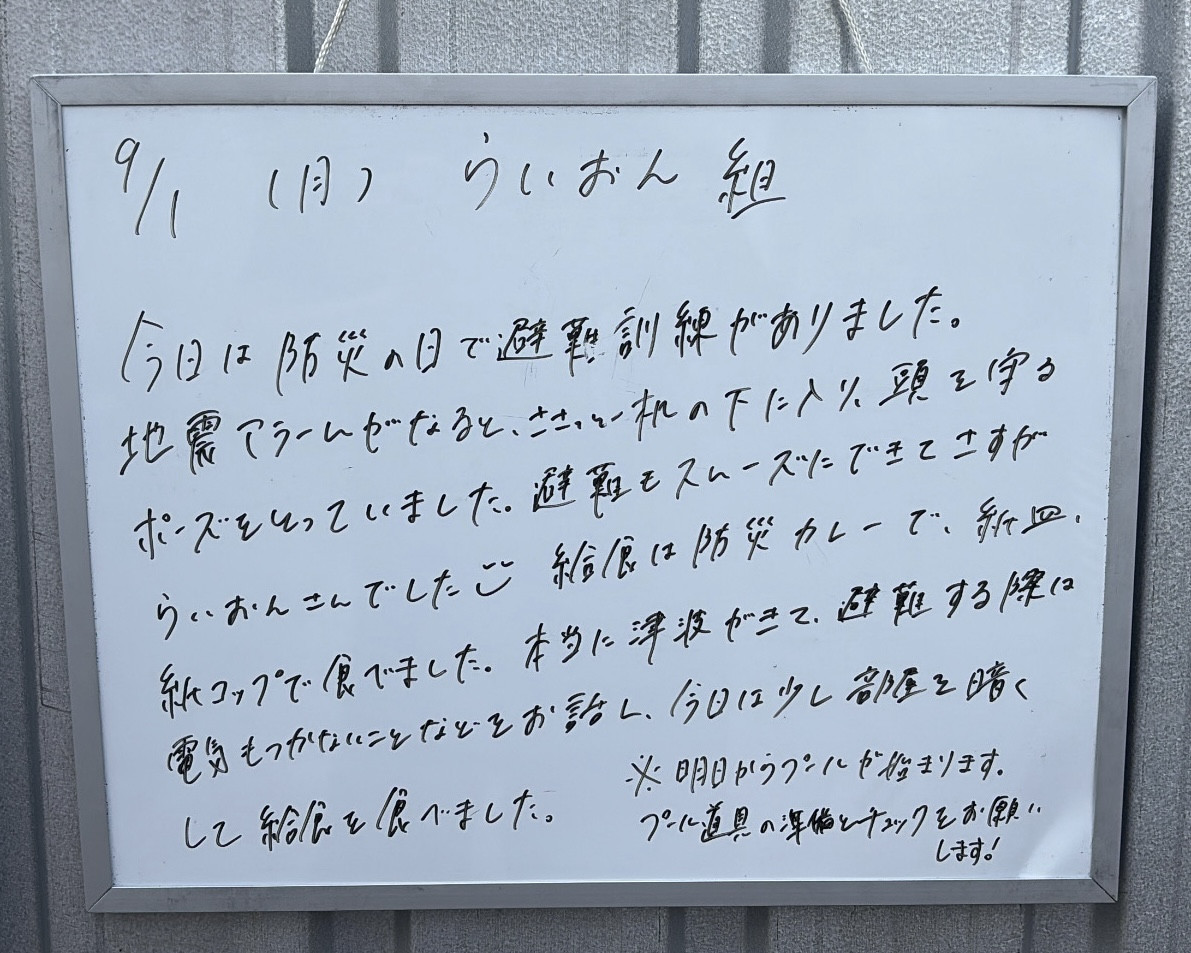 9/1 (月) らいおん組
今日は防災の日で避難訓練がありました。
地震アラームがなると、ささっと机の下に入り、頭を守る
ポーズをとっていました。避難もスムーズにできてさすが
らいおんさんでした 給食は防災カレーで、紙皿、
紙コップで食べました。本当に津波がきて、避難する際は
電気もつかないことなどをお話し、今日は少し部屋を暗く
して給食を食べました。
※明日からプールが始まります。
プール道具の準備とチェックをお願い
します!